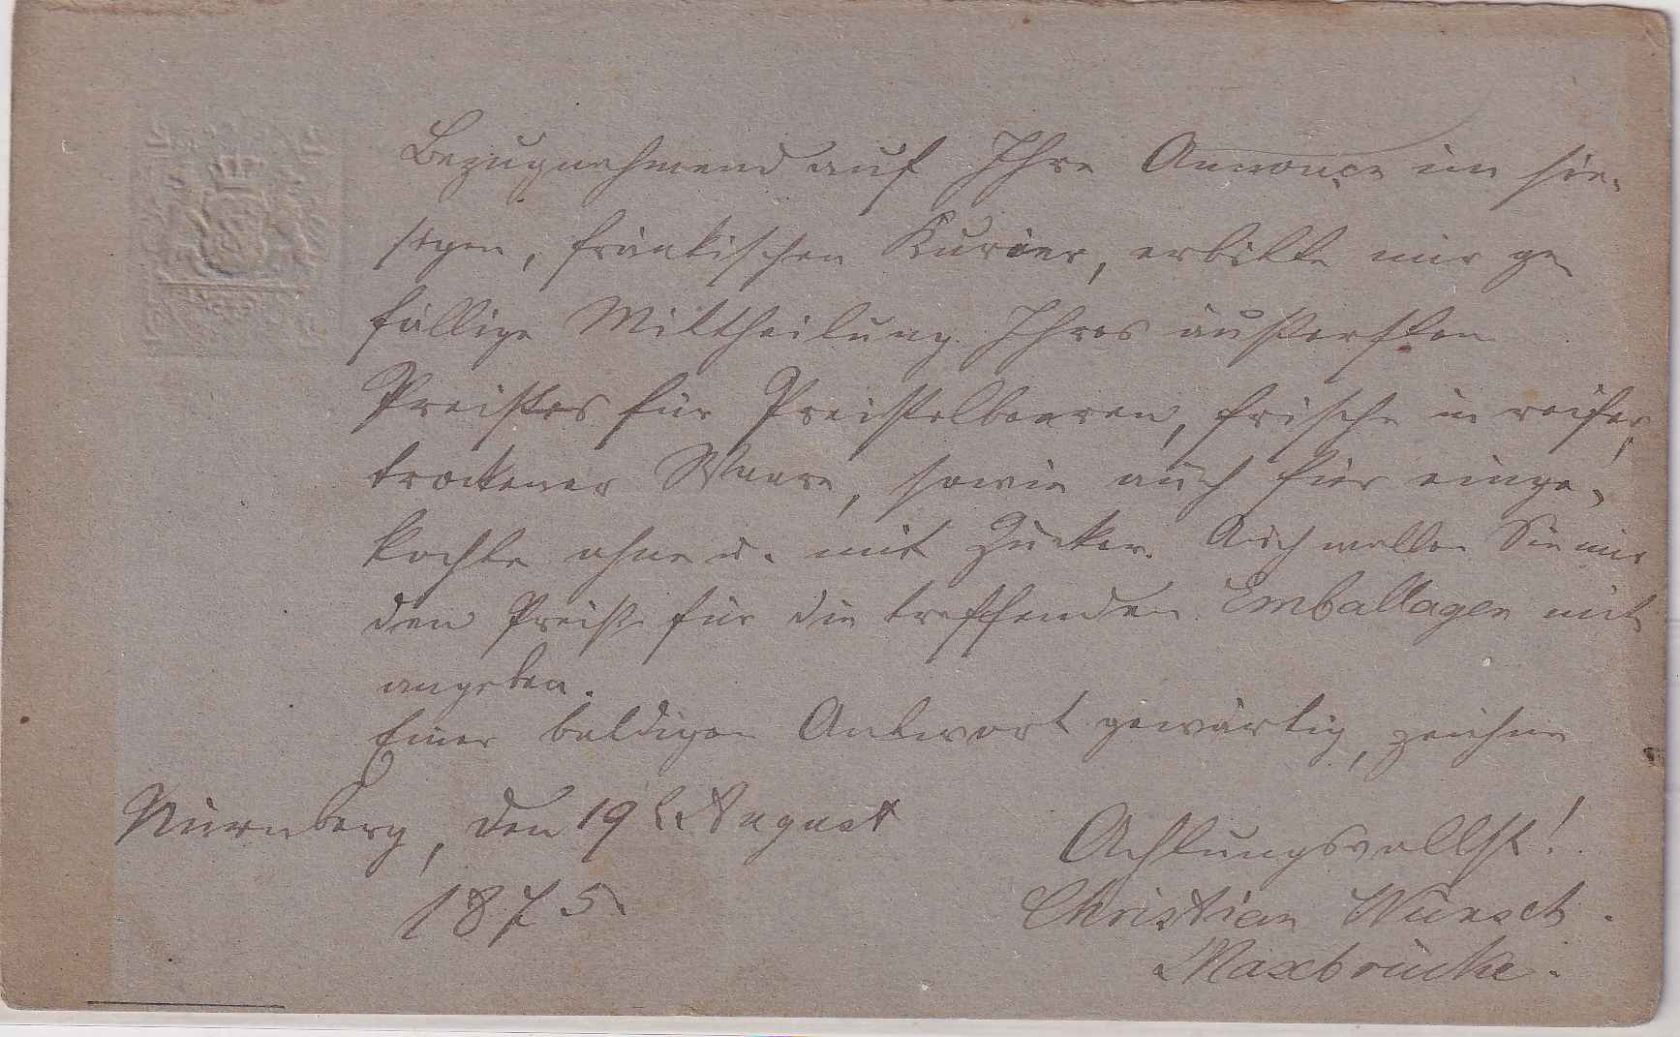 Bezugnehmend auf Ihre Annonce im hie-
sigen, fränkischen Kurier, erbitte mir ge-
fällige Mittheilung Ihres äußersten
Preißes für Preißelbeeren, frische in reifer,
trockener Waare, sowie auch für einge-
kochte ohne u. mit Zucker. Auch wollen Sie mir
den Preiß für die treffenden Emballagen mit
angeben.
Einer baldigen Antwort gewärtig, zeichne
Nürnberg, den 19 August
1875.
Achtungsvollst!
Christian Wünsch.
Maxbrücke.